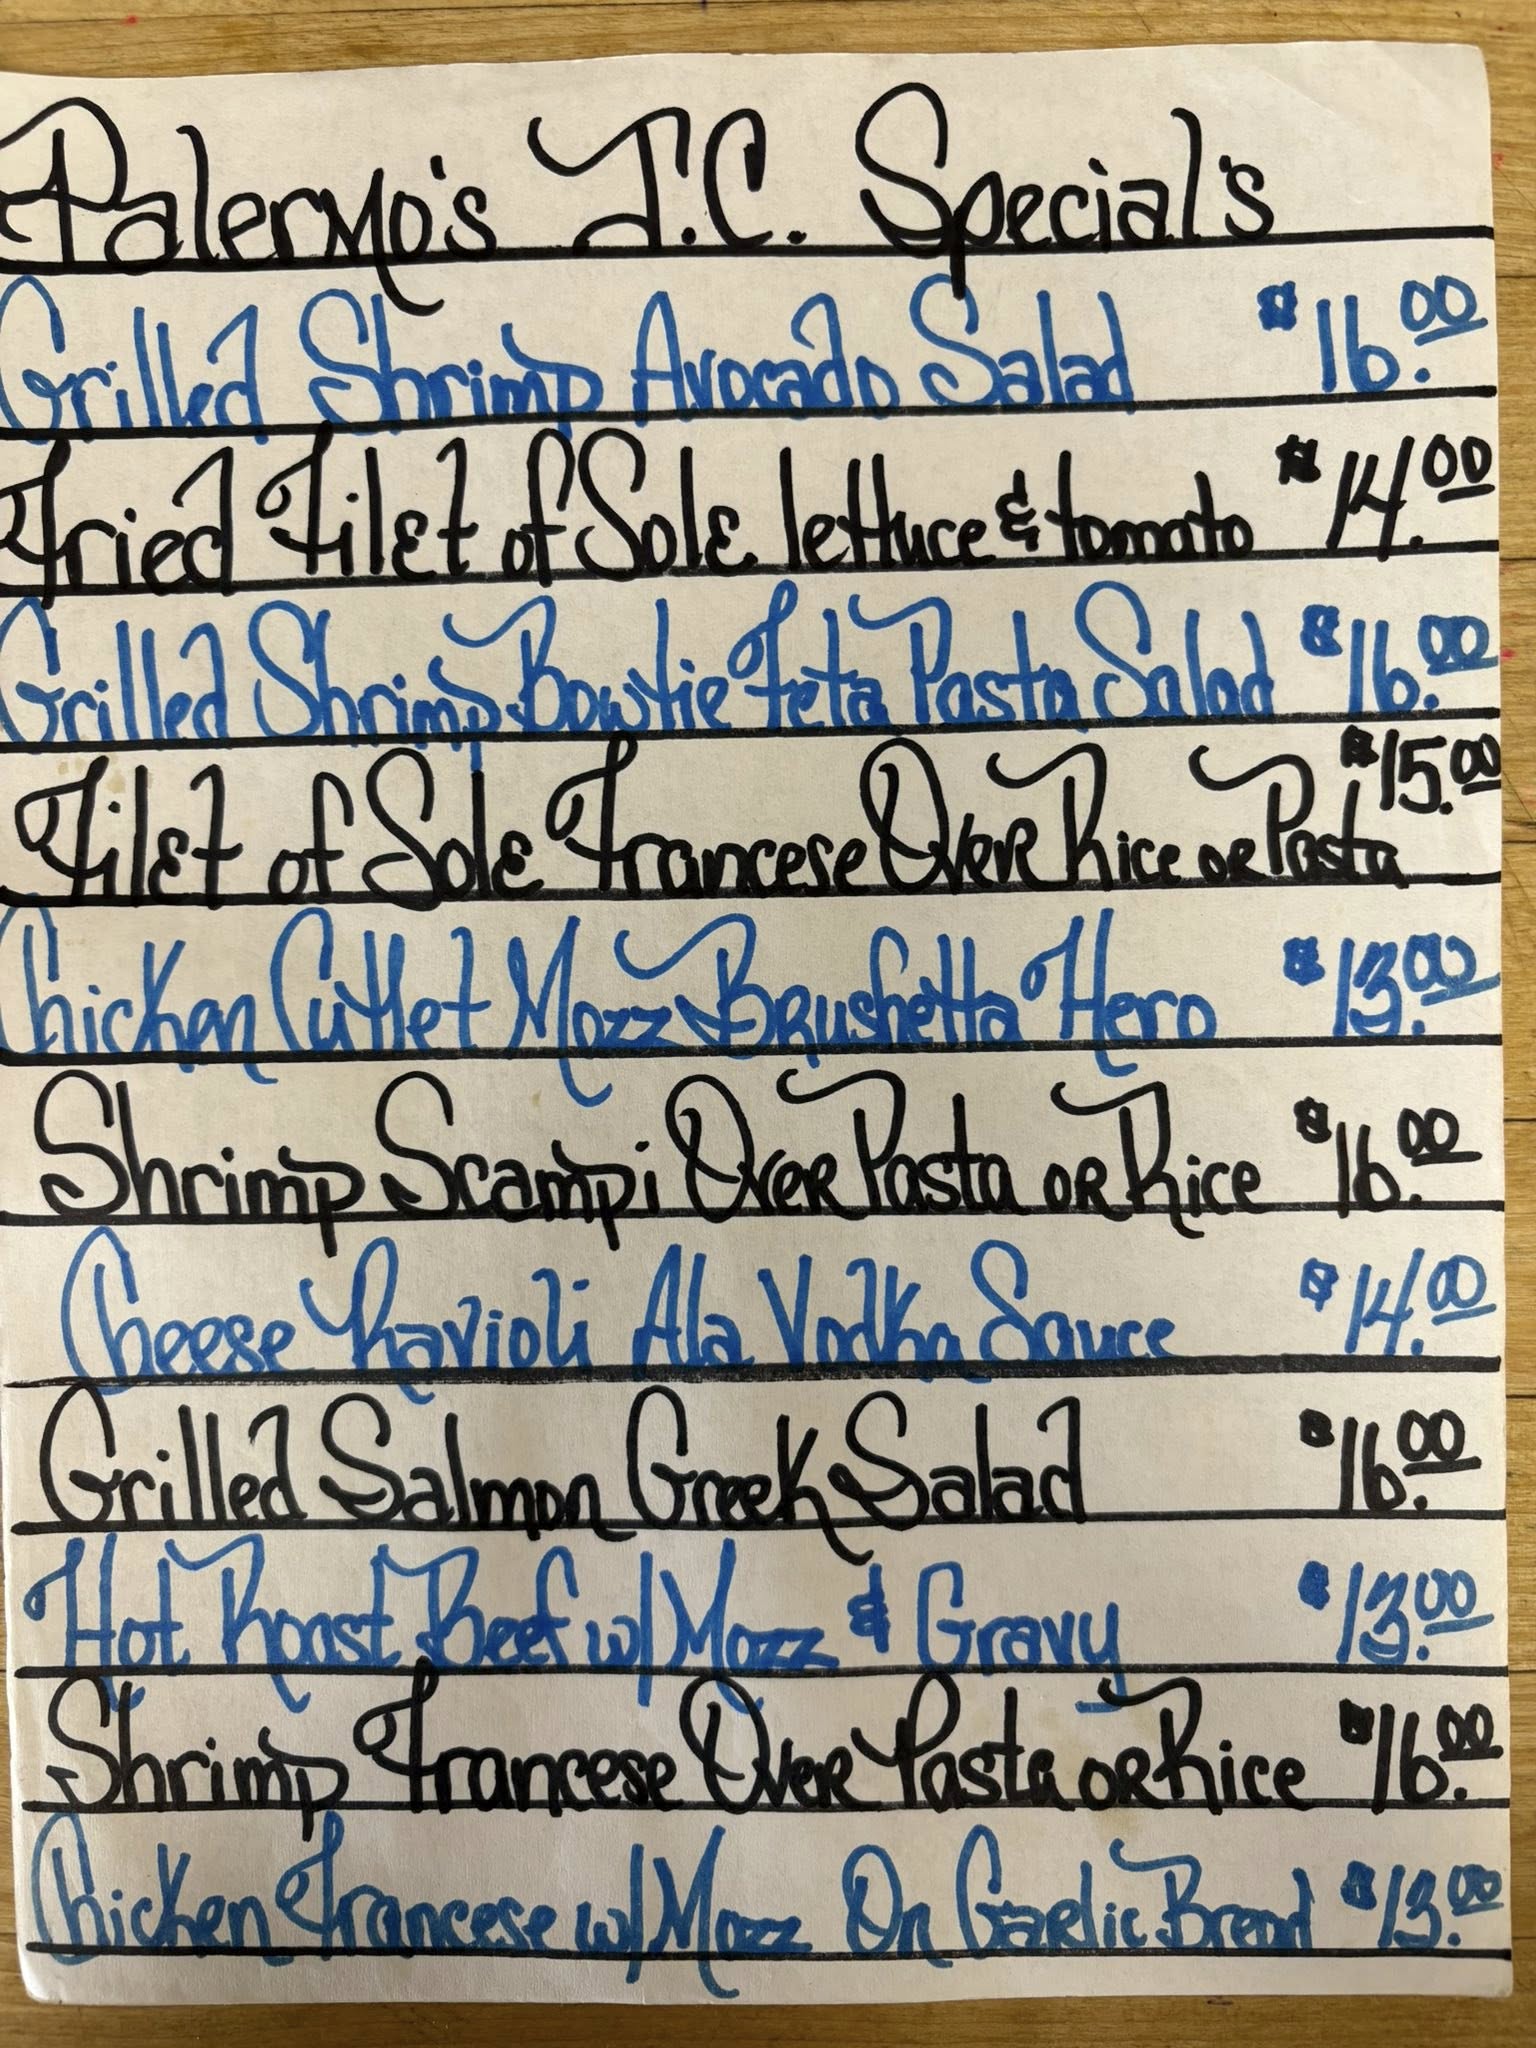 Palermo's J.C. Special's
Grilled Shrimp Avocado Salad $16.00
Fried Filet of Sole lettuce & tomato $14.00
Grilled Shrimp Bowtie Feta Pasta Salad $16.00
Filet of Sole Francese Over Rice or Pasta $15.00
Chicken Cutlet Mozz Brushetta Hero $13.00
Shrimp Scampi Over Pasta or Rice $16.00
Cheese Ravioli Ala Vodka Sauce $14.00
Grilled Salmon Greek Salad $16.00
Hot Roast Beef w/ Mozz & Gravy $13.00
Shrimp Francese Over Pasta or Rice $16.00
Chicken Francese w/ Mozz On Gaelic Bread $13.00